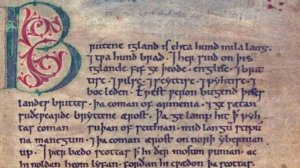 Brittene igland is ehta hund mila lang.
⁊ twa hund brad. ⁊ her sind on þis
iglande fif geþeode. englisc. ⁊ brit
tisc. ⁊ wilsc. ⁊ scyttisc. ⁊ pyhtisc. ⁊
boc leden. Erest weron bugend þises
landes brittes. þa coman of armenia. ⁊ gesætan
suðewearde bryttene ærost. Þa gelamp hit ꝥ pyh
tas coman suþan of scithian. mid langū scipū
na manegum. ⁊ þa coman ærost on norþ ybernian
up. ⁊ þær bædo scottas ꝥ hi ðer moston wunian. ac
hi noldan heom lyfan. forðan hi cwædon þa scottas.